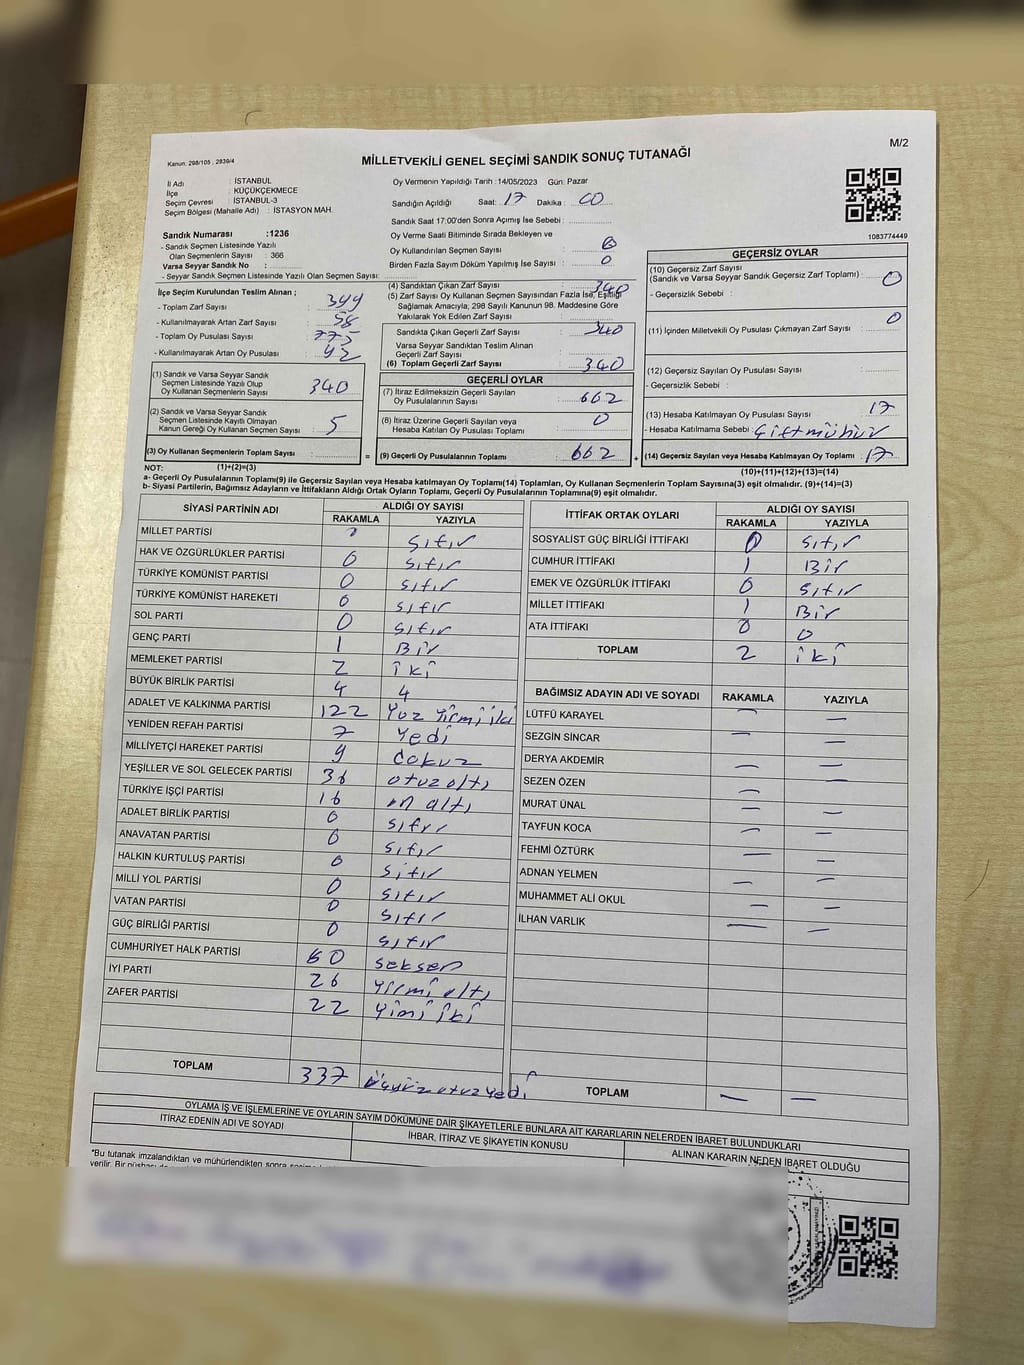 M/2
Kanun. 298/105 , 2839/4
MİLLETVEKİLİ GENEL SEÇİMİ SANDIK SONUÇ TUTANAĞI
İl Adı : İSTANBUL
İlçe : KÜÇÜKÇEKMECE
Seçim Çevresi : İSTANBUL-3
Seçim Bölgesi (Mahalle Adı) : İSTASYON MAH.
Oy Vermenin Yapıldığı Tarih :14/05/2023 Gün: Pazar
Sandığın Açıldığı Saat: 17 Dakika : 00
Sandık Saat 17:00'den Sonra Açımış İse Sebebi :
Oy Verme Saati Bitiminde Sırada Bekleyen ve
Oy Kullandırılan Seçmen Sayısı :
Birden Fazla Sayım Döküm Yapılmış İse Sayısı : 0
1083774449
Sandık Numarası :1236
- Sandık Seçmen Listesinde Yazılı
Olan Seçmenlerin Sayısı : 366
Varsa Seyyar Sandık No :
- Seyyar Sandık Seçmen Listesinde Yazılı Olan Seçmen Sayısı:
İlçe Seçim Kurulundan Teslim Alınan ;
- Toplam Zarf Sayısı : 399
- Kullanılmayarak Artan Zarf Sayısı : 58
- Toplam Oy Pusulası Sayısı : 775
- Kullanılmayarak Artan Oy Pusulası : 92
(1) Sandık ve Varsa Seyyar Sandık
Seçmen Listesinde Yazılı Olup
Oy Kullanan Seçmenlerin Sayısı : 340
(2) Sandık ve Varsa Seyyar Sandık
Seçmen Listesinde Kayıtlı Olmayan
Kanun Gereği Oy Kullanan Seçmen Sayısı : 5
(3) Oy Kullanan Seçmenlerin Toplam Sayısı :
(4) Sandıktan Çıkan Zarf Sayısı : 340
(5) Zarf Sayısı Oy Kullanan Seçmen Sayısından Fazla İse, Eşitliği
Sağlamak Amacıyla, 298 Sayılı Kanunun 98. Maddesine Göre
Yakılarak Yok Edilen Zarf Sayısı :
Sandıkta Çıkan Geçerli Zarf Sayısı : 340
Varsa Seyyar Sandıktan Teslim Alınan
Geçerli Zarf Sayısı :
(6) Toplam Geçerli Zarf Sayısı : 340
GEÇERLİ OYLAR
(7) İtiraz Edilmeksizin Geçerli Sayılan
Oy Pusulalarının Sayısı : 662
(8) İtiraz Üzerine Geçerli Sayılan veya
Hesaba Katılan Oy Pusulası Toplamı : 0
= (9) Geçerli Oy Pusulalarının Toplamı : 662
GEÇERSİZ OYLAR
(10) Geçersiz Zarf Sayısı
(Sandık ve Varsa Seyyar Sandık Geçersiz Zarf Toplamı) : 0
- Geçersizlik Sebebi :
(11) İçinden Milletvekili Oy Pusulası Çıkmayan Zarf Sayısı : 0
(12) Geçersiz Sayılan Oy Pusulası Sayısı :
- Geçersizlik Sebebi :
(13) Hesaba Katılmayan Oy Pusulası Sayısı : 17
- Hesaba Katılmama Sebebi : Çift mühür
+ (14) Geçersiz Sayılan veya Hesaba Katılmayan Oy Toplamı : 17
NOT: (1)+(2)=(3)
(10)+(11)+(12)+(13)=(14)
a- Geçerli Oy Pusulalarının Toplamı(9) ile Geçersiz Sayılan veya Hesaba katılmayan Oy Toplamı(14) Toplamları, Oy Kullanan Seçmenlerin Toplam Sayısına(3) eşit olmalıdır. (9)+(14)=(3)
b- Siyasi Partilerin, Bağımsız Adayların ve İttifakların Aldığı Ortak Oyların Toplamı, Geçerli Oy Pusulalarının Toplamına(9) eşit olmalıdır.
SİYASİ PARTİNİN ADI ALDIĞI OY SAYISI
RAKAMLA YAZIYLA
MİLLET PARTİSİ 0 Sıfır
HAK VE ÖZGÜRLÜKLER PARTİSİ 0 Sıfır
TÜRKİYE KOMÜNİST PARTİSİ 0 Sıfır
TÜRKİYE KOMÜNİST HAREKETİ 0 Sıfır
SOL PARTİ 0 Sıfır
GENÇ PARTİ 1 Bir
MEMLEKET PARTİSİ 2 iki
BÜYÜK BİRLİK PARTİSİ 4 4
ADALET VE KALKINMA PARTİSİ 122 Yüz Yirmi iki
YENİDEN REFAH PARTİSİ 7 Yedi
MİLLİYETÇİ HAREKET PARTİSİ 9 dokuz
YEŞİLLER VE SOL GELECEK PARTİSİ 36 otuz altı
TÜRKİYE İŞÇİ PARTİSİ 16 on altı
ADALET BİRLİK PARTİSİ 0 Sıfır
ANAVATAN PARTİSİ 0 Sıfır
HALKIN KURTULUŞ PARTİSİ 0 Sıfır
MİLLİ YOL PARTİSİ 0 Sıfır
VATAN PARTİSİ 0 Sıfır
GÜÇ BİRLİĞİ PARTİSİ 0 Sıfır
CUMHURİYET HALK PARTİSİ 80 seksen
İYİ PARTİ 26 yirmi altı
ZAFER PARTİSİ 22 yirmi iki
TOPLAM 337 üçyüz otuz yedi
İTTİFAK ORTAK OYLARI ALDIĞI OY SAYISI
RAKAMLA YAZIYLA
SOSYALİST GÜÇ BİRLİĞİ İTTİFAKI 0 Sıfır
CUMHUR İTTİFAKI 1 Bir
EMEK VE ÖZGÜRLÜK İTTİFAKI 0 Sıfır
MİLLET İTTİFAKI 1 Bir
ATA İTTİFAKI 0 0
TOPLAM 2 iki
BAĞIMSIZ ADAYIN ADI VE SOYADI RAKAMLA YAZIYLA
LÜTFÜ KARAYEL — —
SEZGİN SİNCAR — —
DERYA AKDEMİR — —
SEZEN ÖZEN — —
MURAT ÜNAL — —
TAYFUN KOCA — —
FEHMİ ÖZTÜRK — —
ADNAN YELMEN — —
MUHAMMET ALİ OKUL — —
İLHAN VARLIK — —
TOPLAM — —
OYLAMA İŞ VE İŞLEMLERİNE VE OYLARIN SAYIM DÖKÜMÜNE DAİR ŞİKAYETLERLE BUNLARA AİT KARARLARIN NELERDEN İBARET BULUNDUKLARI
İTİRAZ EDENİN ADI VE SOYADI İHBAR, İTİRAZ VE ŞİKAYETİN KONUSU ALINAN KARARIN NEDEN İBARET OLDUĞU
"Bu tutanak imzalandıktan ve mühürlendikten sonra
verilir. Bir